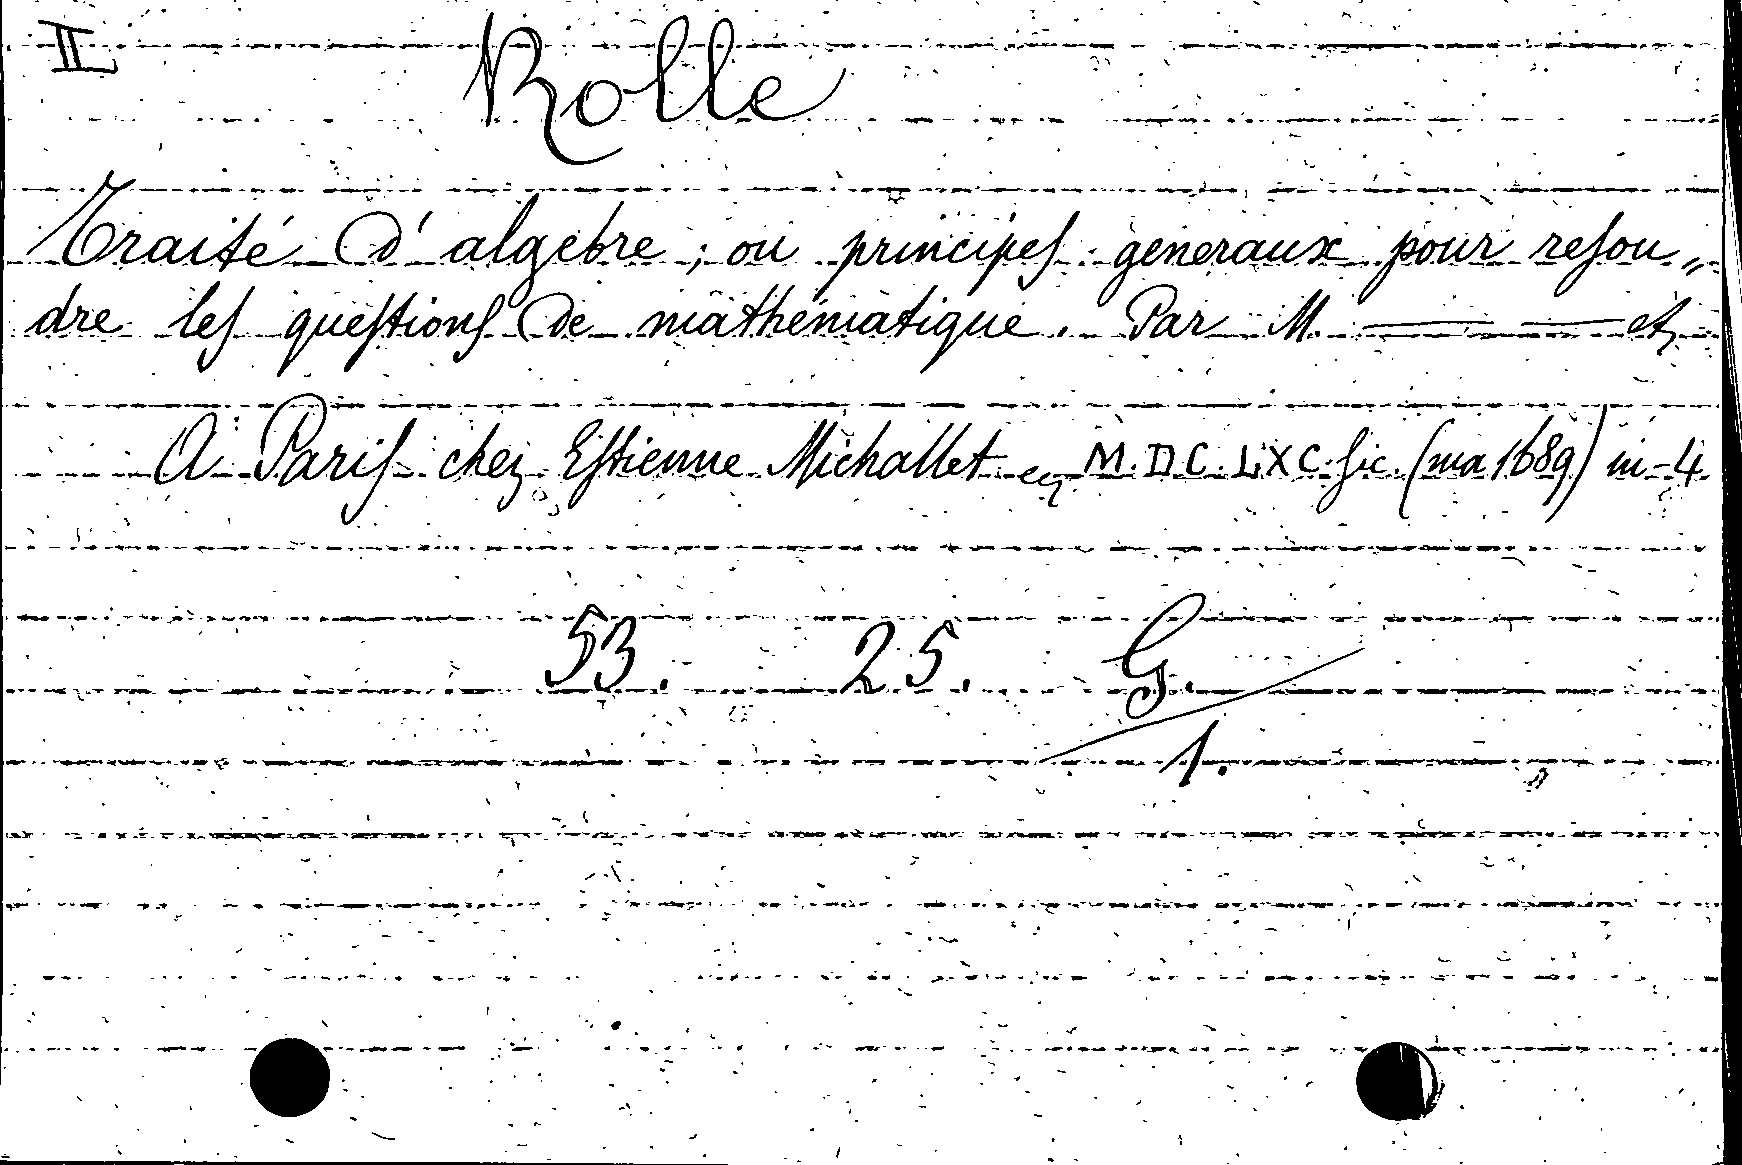 II
Rolle
Traité d'algebre; ou principes generaux pour resou„
dre les questions de mathématique. Par M. —— —— etc
A Paris chez Estienne Michallet M.DC.LXXC. sic. (ma 1689) in-4
53. 25. G.
1.